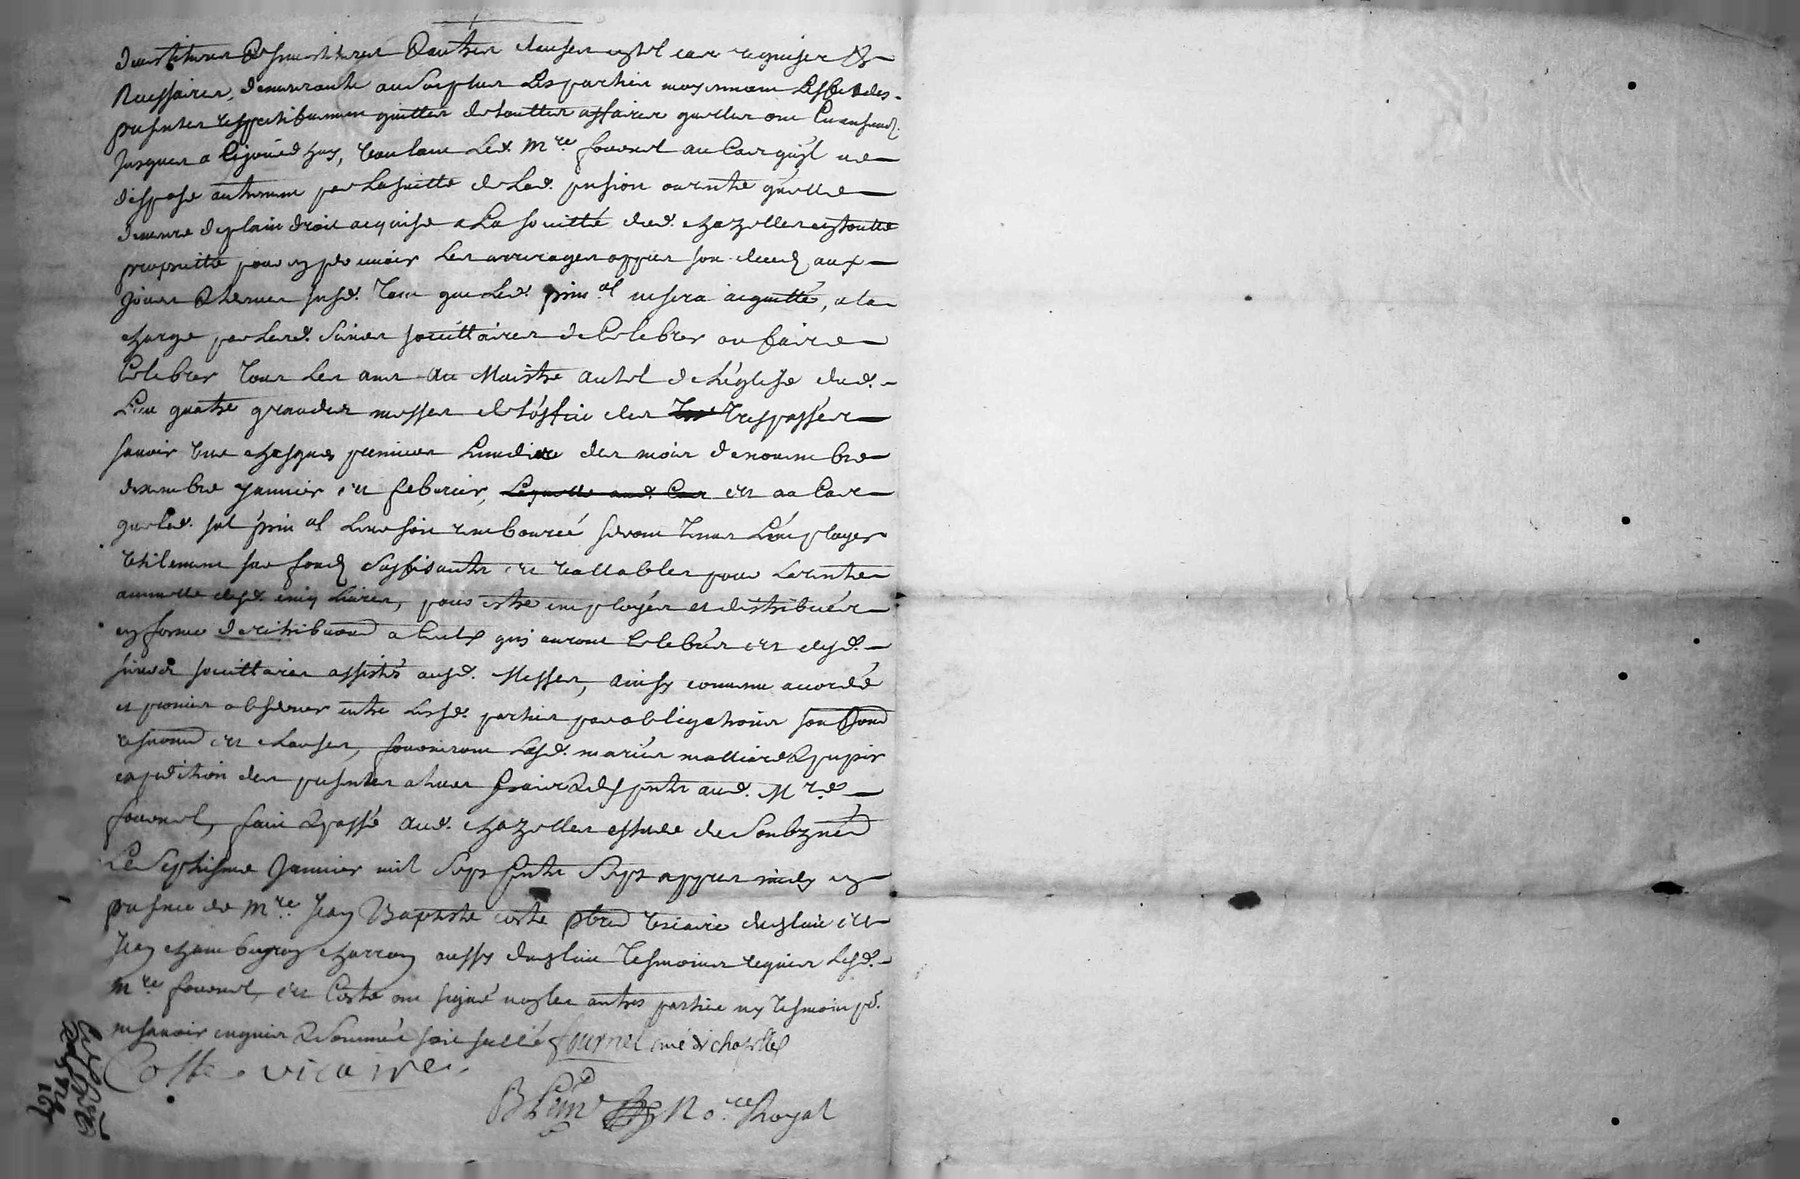 d'investiture & sinvestiture & autres clauses en tel cas requises &
necessaires, demeurants au surplus les parties moyennant l'effet des
presentes respectivement quittes de touttes affaires quelles ont eu ensemble
jusques a ce jourd'huy, voulant led. mre fournel au cas qu'il ne
dispose autrement par la suitte de lad. pension ou rente quelle
demeure de plain droit acquise a la societté dud. chazelles en toutte
proprietté pour en percevoir les arrerages appres son deced aux
jours & termes susd. tant que led. prinal ne sera acquitté, a la
charge par lesd. sieurs societtaires de celebrer ou faire
celebrer tous les ans au maistre autel de l'église dud.
lieu quatre grandes messes de l'office des trespassés
savoir une chasques premiers lundis des mois de novembre
decembre janvier et febvrier, et au cas
que led. sol prinal leur soit rembourcé seront tenus l'employer
utilement sur fond suffisants et vallables pour la rente
annuelle desd. cinq livres, pour estre employés et distribués
en forme de retribuaon a ceux qui auront celebrés et desd.
sieurs societtaires assistés ausd. messes, ainsy convenu accordé
et promis observer entre lesd. parties par obligations soubmons
renonons et clauses, fourniront lesd. mariés malliard & pupier
expedition des presentes a leurs frais & despents aud. Mre
fournel, fait & passé aud. chazelles estude du soubzné
le septiesme janvier mil sept cents sept appres midy en
presence de mre jean Baptiste coste pbre vicaire dud. lieu et
jean charron aussy dud. lieu tesmoins requis lesd.
mre fournel, et Coste ont signé non les autres parties ny tesmoin pr.
ne savoir enquis & sommés soit scellé fournel curé de chazelles
Coste vicaire.
No.re Royal